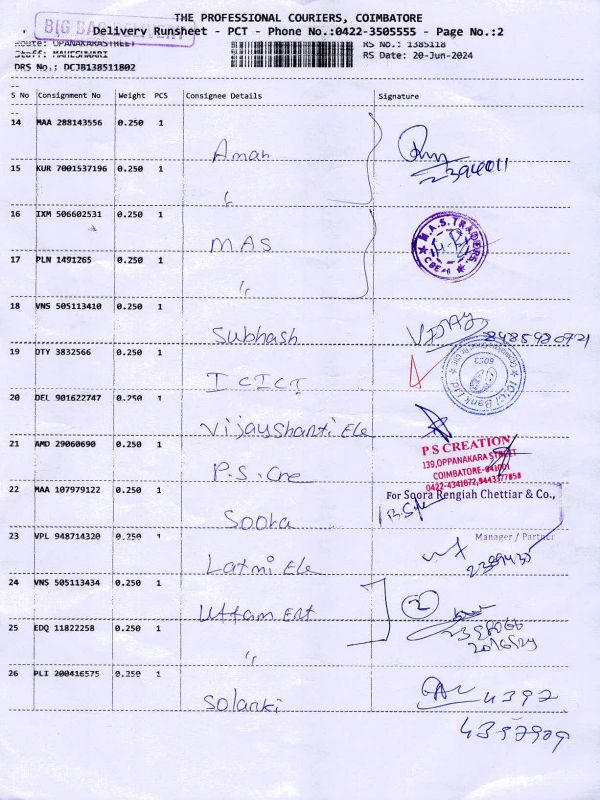 THE PROFESSIONAL COURIERS, COIMBATORE
BIG BAG DELIVERY
Delivery Runsheet - PCT - Phone No.:0422-3505555 - Page No.:2
Route: OPANAKARASTREET
RS No.: 1385118
Staff: MAHESHWARI
RS Date: 20-Jun-2024
DRS No.: DCJB138511802
S No Consignment No Weight PCS Consignee Details Signature
14 MAA 288143556 0.250 1
Aman
15 KUR 7001537196 0.250 1
"
16 IXM 506602531 0.250 1
M.A.S
M.A.S. TRADERS
17 PLN 1491265 0.250 1
"
18 VNS 505113410 0.250 1
Subhash
VIJAY
19 DTY 3832566 0.250 1
ICICI
ICICI Bank Ltd
20 DEL 901622747 0.250 1
Vijayshanti Ele
21 AMD 29060690 0.250 1
P.S. Cre
P S CREATION
139, OPPANAKARA STREET
COIMBATORE-641001
22 MAA 107979122 0.250 1
Soora
For Soora Rengiah Chettiar & Co.,
Manager / Partner
23 VPL 948714320 0.250 1
Laxmi Ele
24 VNS 505113434 0.250 1
Uttam Ent
2
25 EDQ 11822258 0.250 1
"
26 PLI 200416575 0.250 1
Solanki
4397
4397909